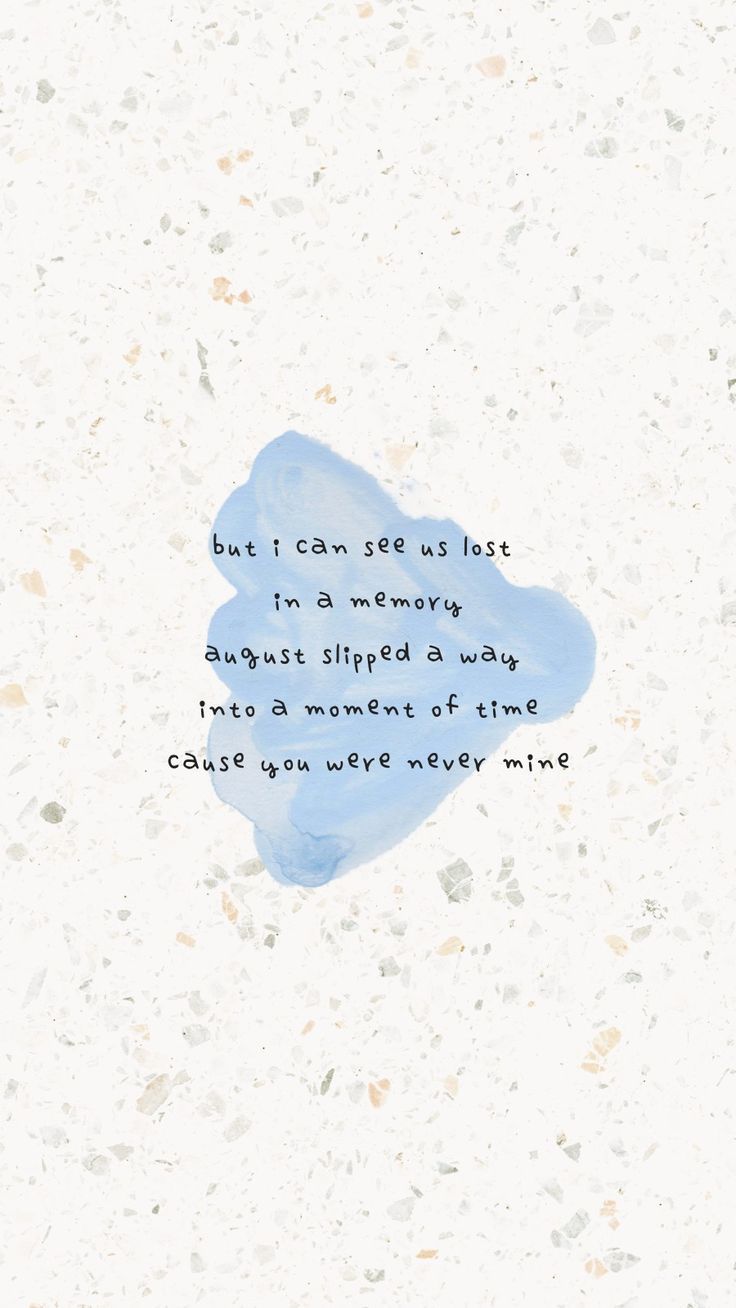 but i can see us lost
in a memory
august slipped a way
into a moment of time
cause you were never mine